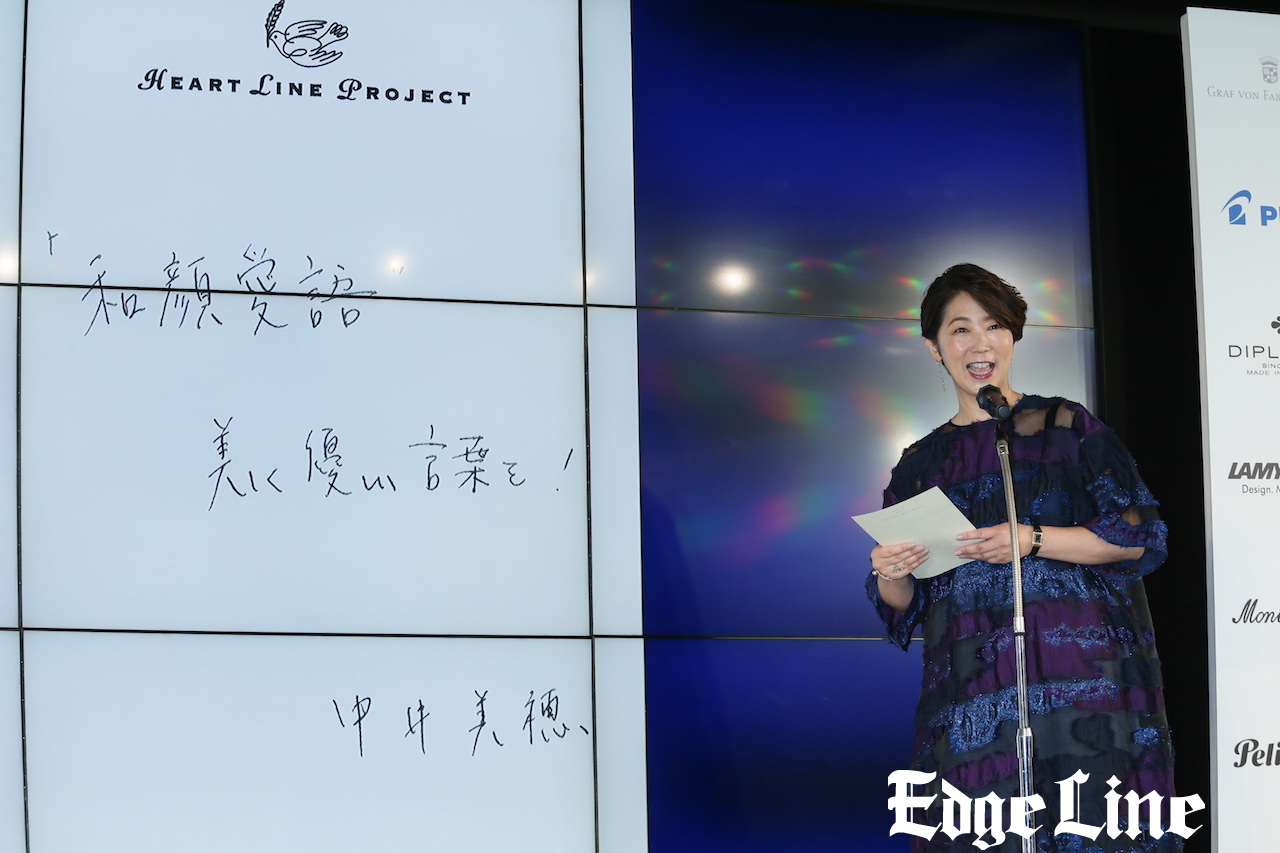 HEART LINE PROJECT
「和顔愛語」
美しく優しい言葉を!
中井美穂
GRAF VON FAB
DIPL
SINC
MADE IN
LAMY
Design. M
Peli
Edge Line